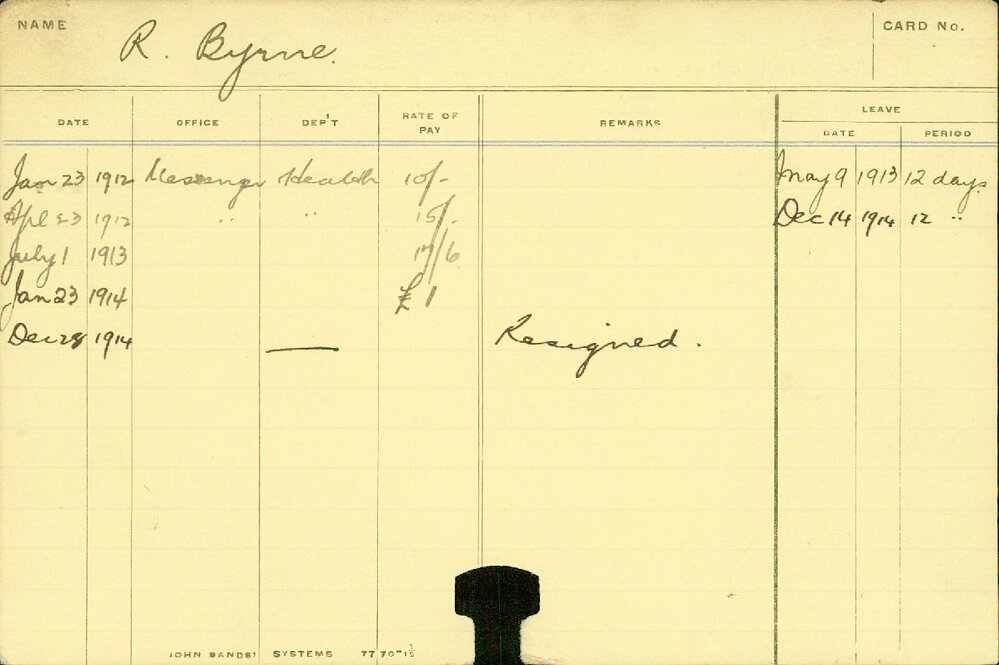 NAME R. Byrne. CARD No.
DATE OFFICE DEP'T RATE OF PAY REMARKS LEAVE
DATE PERIOD
Jan 23 1912 Messenger Health 10/- May 9 1913 12 days
Apl 23 1912 " " 15/- Dec 14 1914 12 "
July 1 1913 17/6
Jan 23 1914 £1
Dec 28 1914 — Resigned.
JOHN SANDS' SYSTEMS